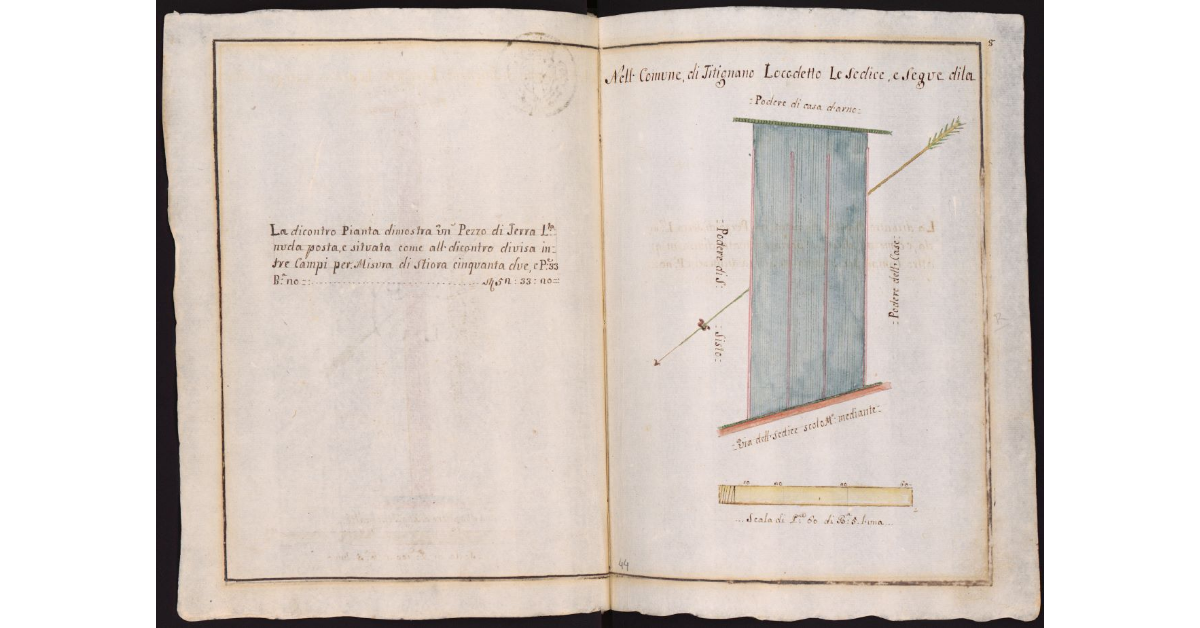 La dicontro Pianta dimostra un Pezzo di Terra
nuda posta, e situata come all dicontro divisa in=
tre Campi per Misura di Stiora cinquanta due, e P. 33
B. no
8
Nell Comune, di Titignano Locodetto Le Sedice, e Segve dila
: Podere di casa d'arno :
: Podere di S:
: Sisto :
: Podere dell Case :
: Via dell Sedice scolo M. mediante :
Scala di P. 60 di B. 8, l'una
44